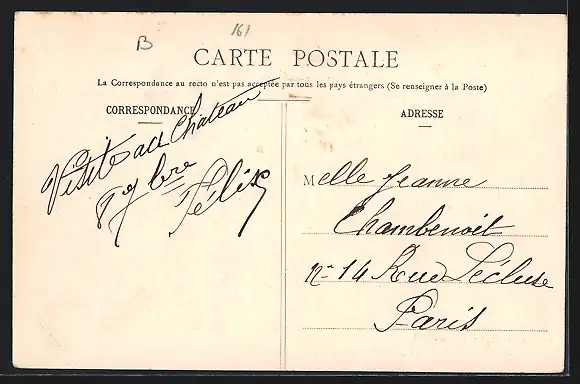 B
161
CARTE POSTALE
La Correspondance au recto n'est pas acceptée par tous les pays étrangers (Se renseigner à la Poste)
CORRESPONDANCE
Visite au Chateau
7bre
Félix
ADRESSE
Melle Jeanne
Chambenoit
n° 14 Rue Lécluse
Paris